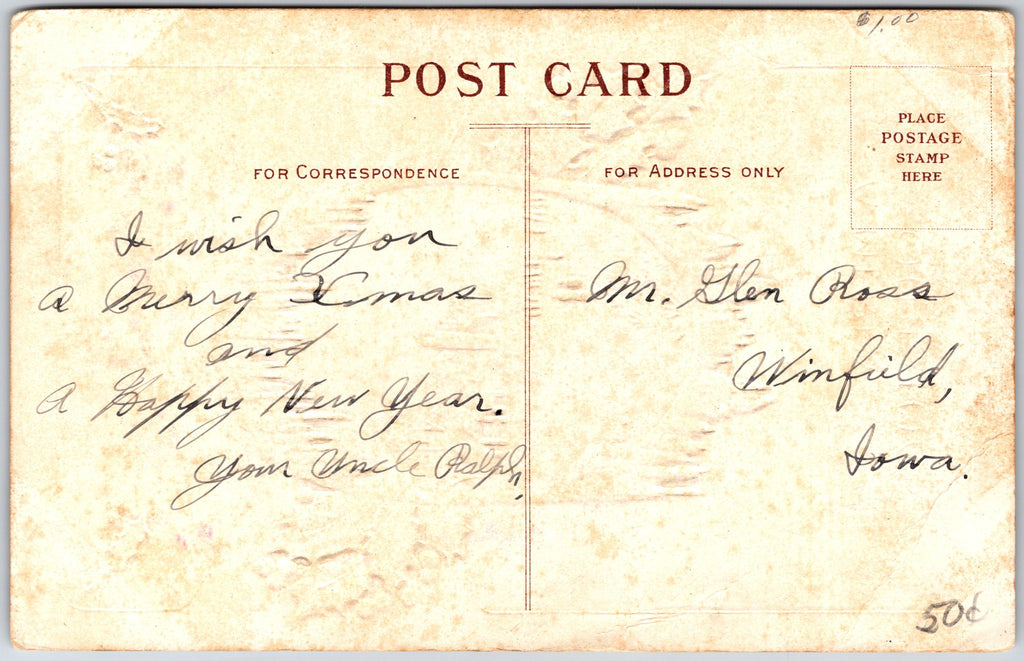 $1.00
POST CARD
PLACE
POSTAGE
STAMP
HERE
FOR CORRESPONDENCE
FOR ADDRESS ONLY
I wish you
a Merry Xmas
and
a Happy New Year.
Your Uncle Ralph,
Mr. Glen Ross
Winfield,
Iowa.
50¢